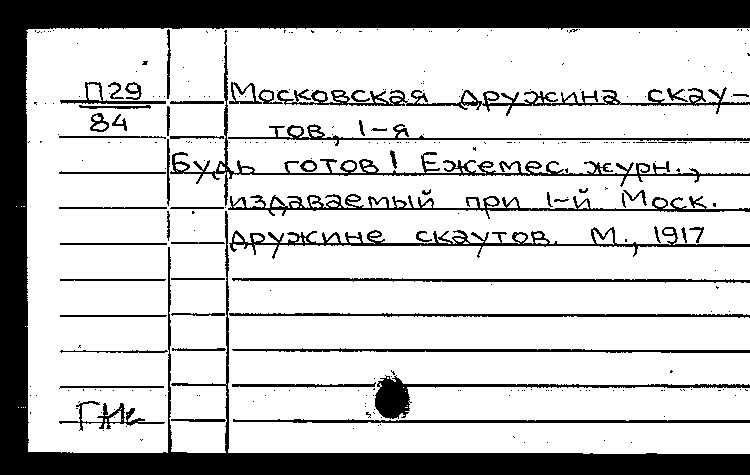 П29
84
Московская дружина скау-
тов, 1-я.
Будь готов! Ежемес. журн.,
издаваемый при 1-й Моск.
дружине скаутов. М., 1917